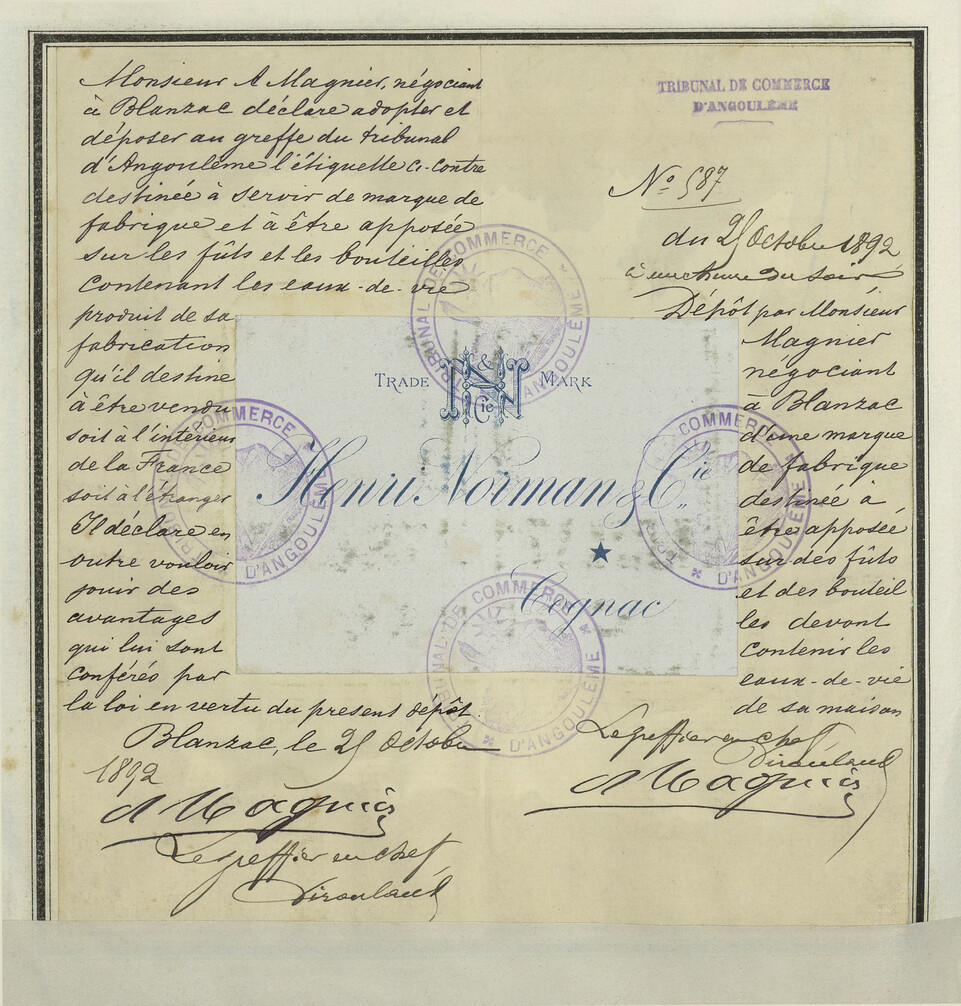 Monsieur A Magnier, négociant
à Blanzac déclare adopter et
déposer au greffe du tribunal
d'Angoulême l'étiquette ci-contre
destinée à servir de marque de
fabrique et à être apposée
sur les fûts et les bouteilles
contenant les eaux-de-vie
produit de sa
fabrication
qu'il destine
à être vendu
soit à l'interieur
de la France
soit à l'étranger
Il déclare en
outre vouloir
jouir des
avantages
qui lui sont
conférés par
la loi en vertu du present dépôt.
Blanzac, le 25 Octobre
1892
A Magnier
Le greffier en chef
TRIBUNAL DE COMMERCE
D'ANGOULÊME
No 587
du 25 Octobre 1892
à une heure du soir,
Dépôt par Monsieur
Magnier
négociant
à Blanzac
d'une marque
de fabrique
destinée à
être apposée
sur des fûts
et des bouteil
les devant
contenir les
eaux-de-vie
de sa maison
Le greffier en chef
A Magnier
TRADE MARK
N & Cie
Henri Norman & Cie
Cognac
TRIBUNAL DE COMMERCE D'ANGOULÊME
TRIBUNAL DE COMMERCE D'ANGOULÊME
TRIBUNAL DE COMMERCE D'ANGOULÊME
COMMERCE D'ANGOULÊME